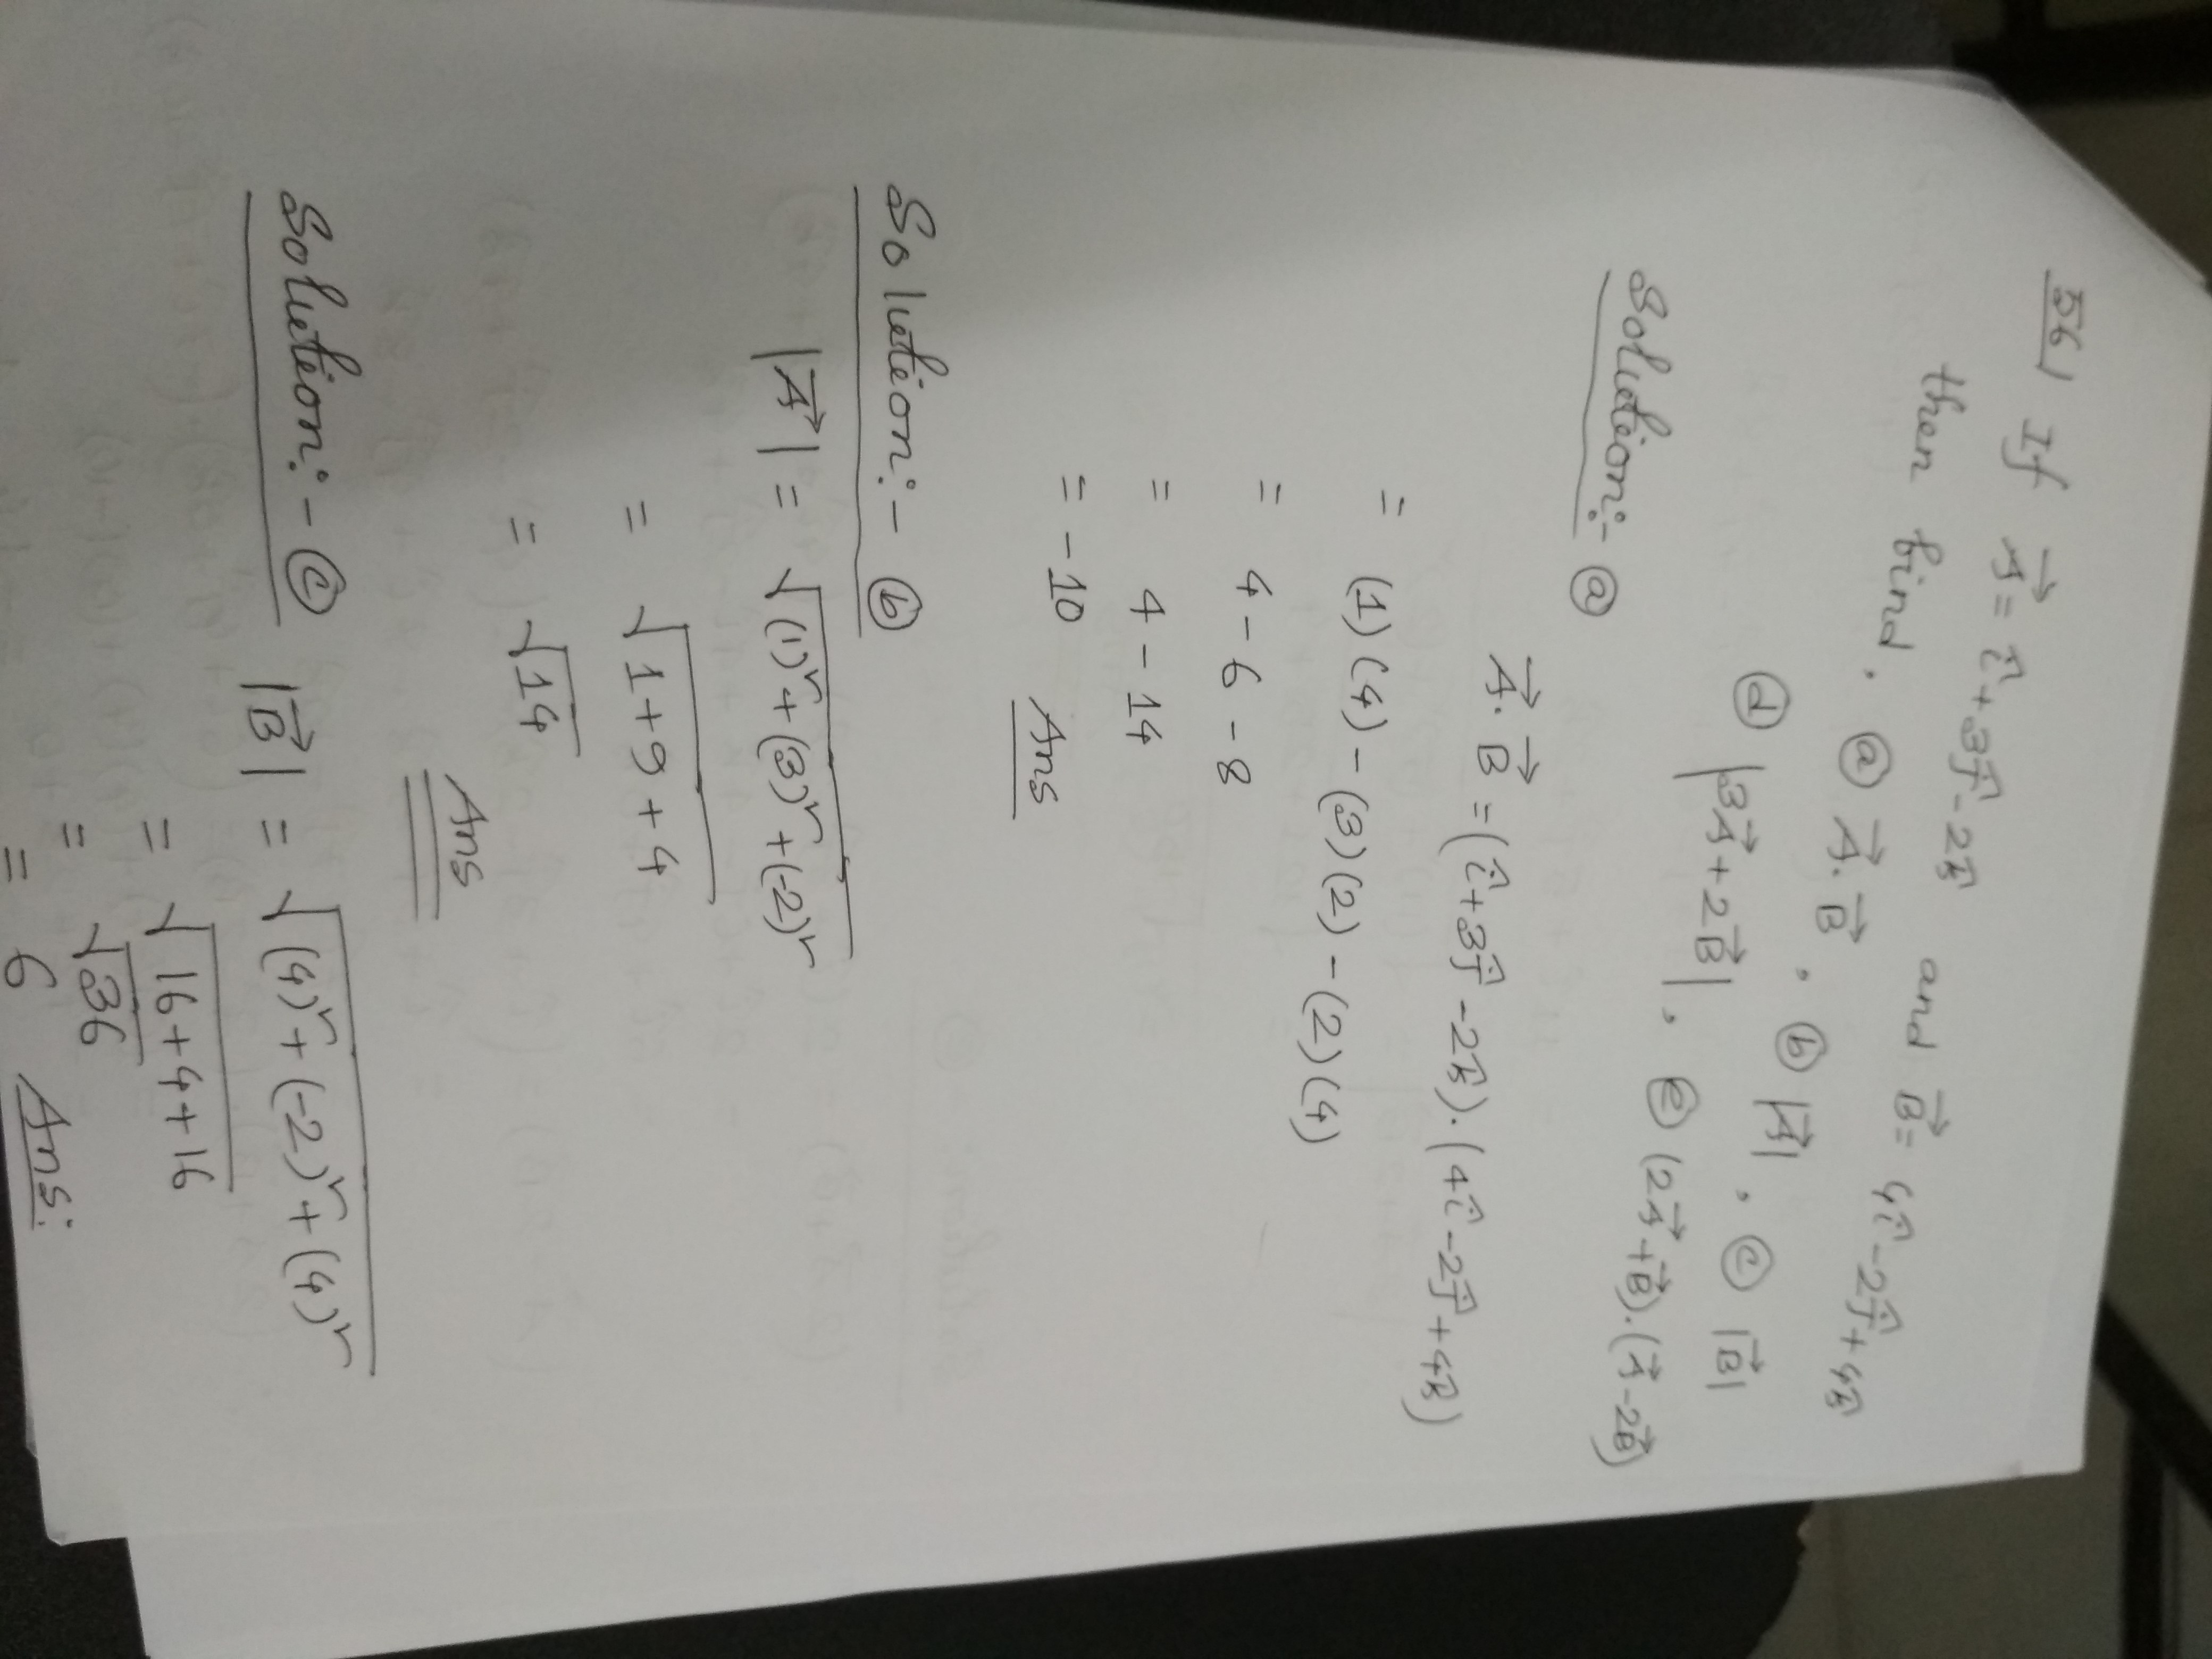 56/ If A⃗ = î + 3ĵ - 2k̂ and B⃗ = 4î - 2ĵ + 4k̂
then find, ⓐ A⃗. B⃗, ⓑ |A⃗|, ⓒ |B⃗|
ⓓ |3A⃗ + 2B⃗|, ⓔ (2A⃗ + B⃗).(A⃗ - 2B⃗)
Solution:- ⓐ
A⃗. B⃗ = (î + 3ĵ - 2k̂).(4î - 2ĵ + 4k̂)
= (1)(4) - (3)(2) - (2)(4)
= 4 - 6 - 8
= 4 - 14
= -10
Ans
Solution:- ⓑ
|A⃗| = √(1)² + (3)² + (-2)²
= √1 + 9 + 4
= √14
Ans
Solution:- ⓒ |B⃗| = √(4)² + (-2)² + (4)²
= √16 + 4 + 16
= √36
= 6 Ans: